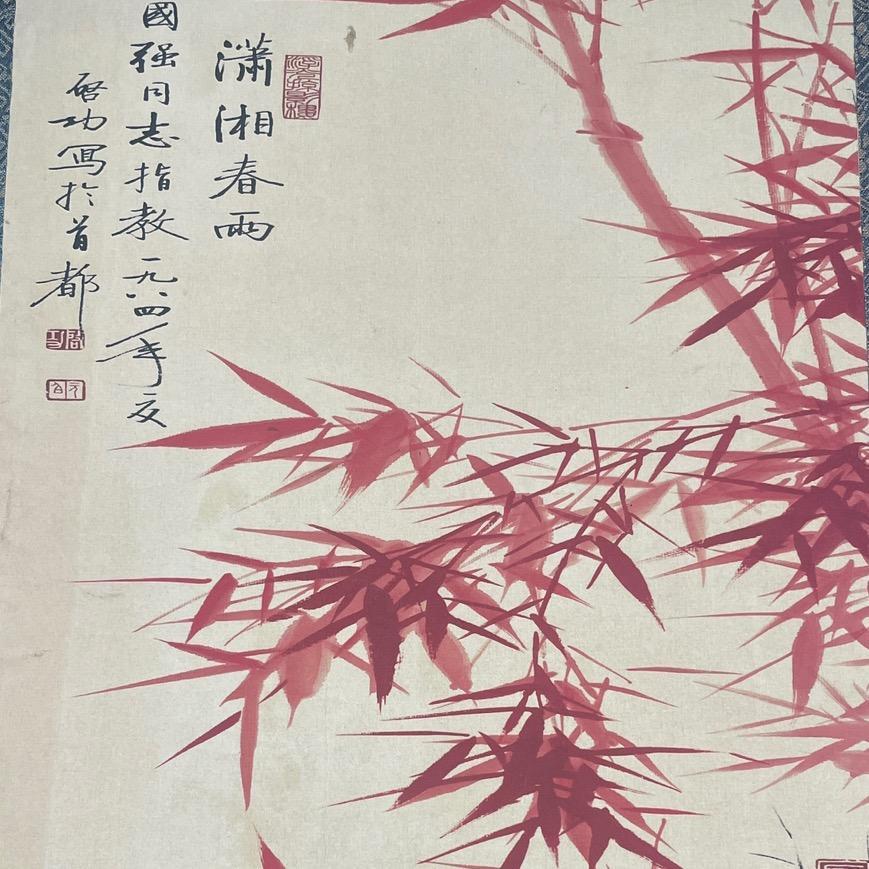 潇湘春雨
國强同志指教一九八四年夏
啓功寫於首都
啓功